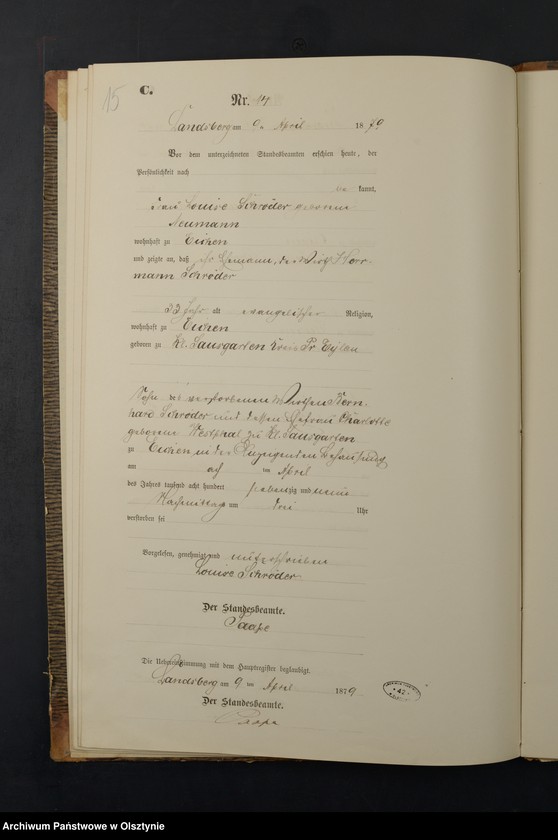 15
C.
Nr. 14
Landsberg am 9. April 1879
Vor dem unterzeichneten Standesbeamten erschien heute, der
Persönlichkeit nach
be kannt,
Frau Louise Schröder geborene
Neumann
wohnhaft zu Eichen
und zeigte an, daß ihr Ehemann, der Wirth Herr-
mann Schröder
33 Jahr alt evangelischer Religion,
wohnhaft zu Eichen
geboren zu Kl. Sausgarten Kreis Pr. Eylau
Sohn des verstorbenen Wirthen
hard Schröder und dessen Ehefrau Charlotte
geborene Westphal zu Kl. Sausgarten
zu Eichen, in der Behausung
am acht ten April
des Jahres tausend acht hundert siebenzig und neun
Nachmittags um drei Uhr
verstorben sei
Vorgelesen, genehmigt und unterschrieben
Louise Schröder
Der Standesbeamte.
Paape
Die Uebereinstimmung mit dem Hauptregister beglaubigt.
Landsberg am 9 ten April 1879
Der Standesbeamte.
Paape
42
Archiwum Państwowe w Olsztynie